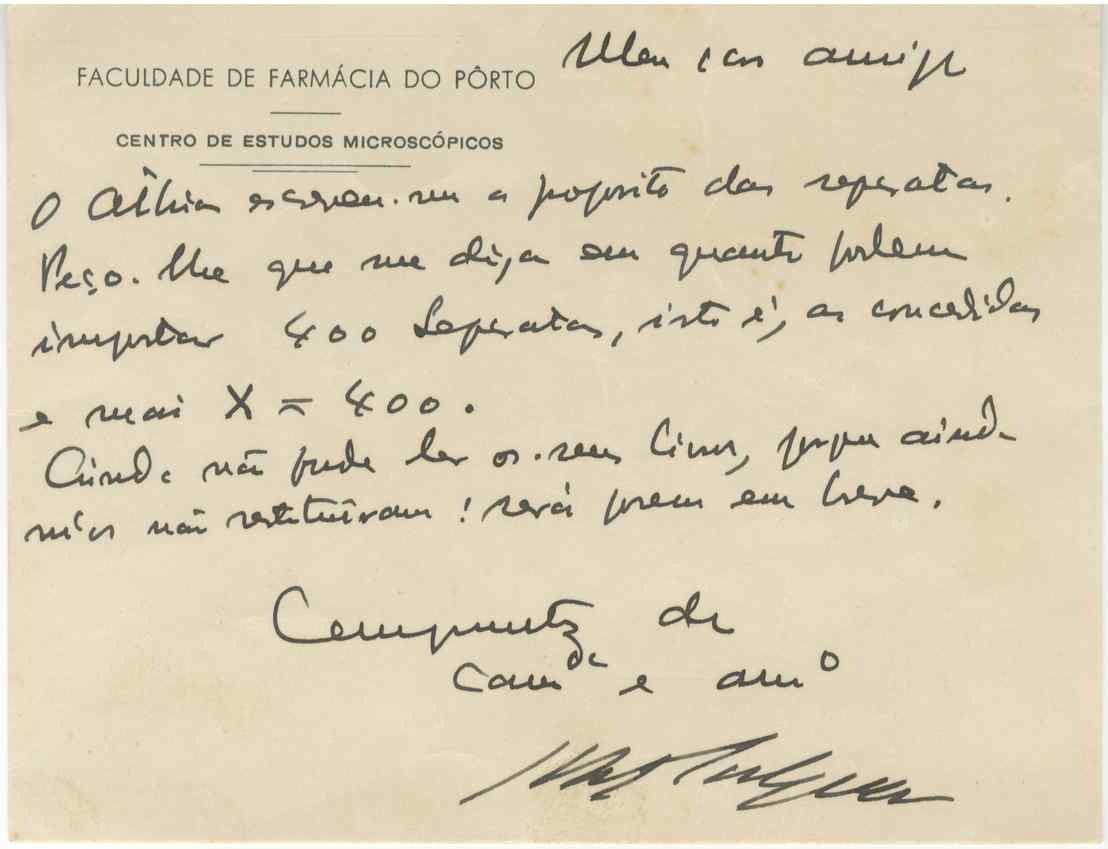 FACULDADE DE FARMÁCIA DO PÔRTO
CENTRO DE ESTUDOS MICROSCÓPICOS
Meu caro amigo
O Athias escreveu-me a propósito das separatas.
Peço-lhe que me diga em quanto podem
importar 400 Separatas, isto é, as concedidas
e mais X = 400.
Ainda não pude ler os seus livros, porque ainda
não restituiram! será porem em breve.
Cumprimentos de
Camda e amo